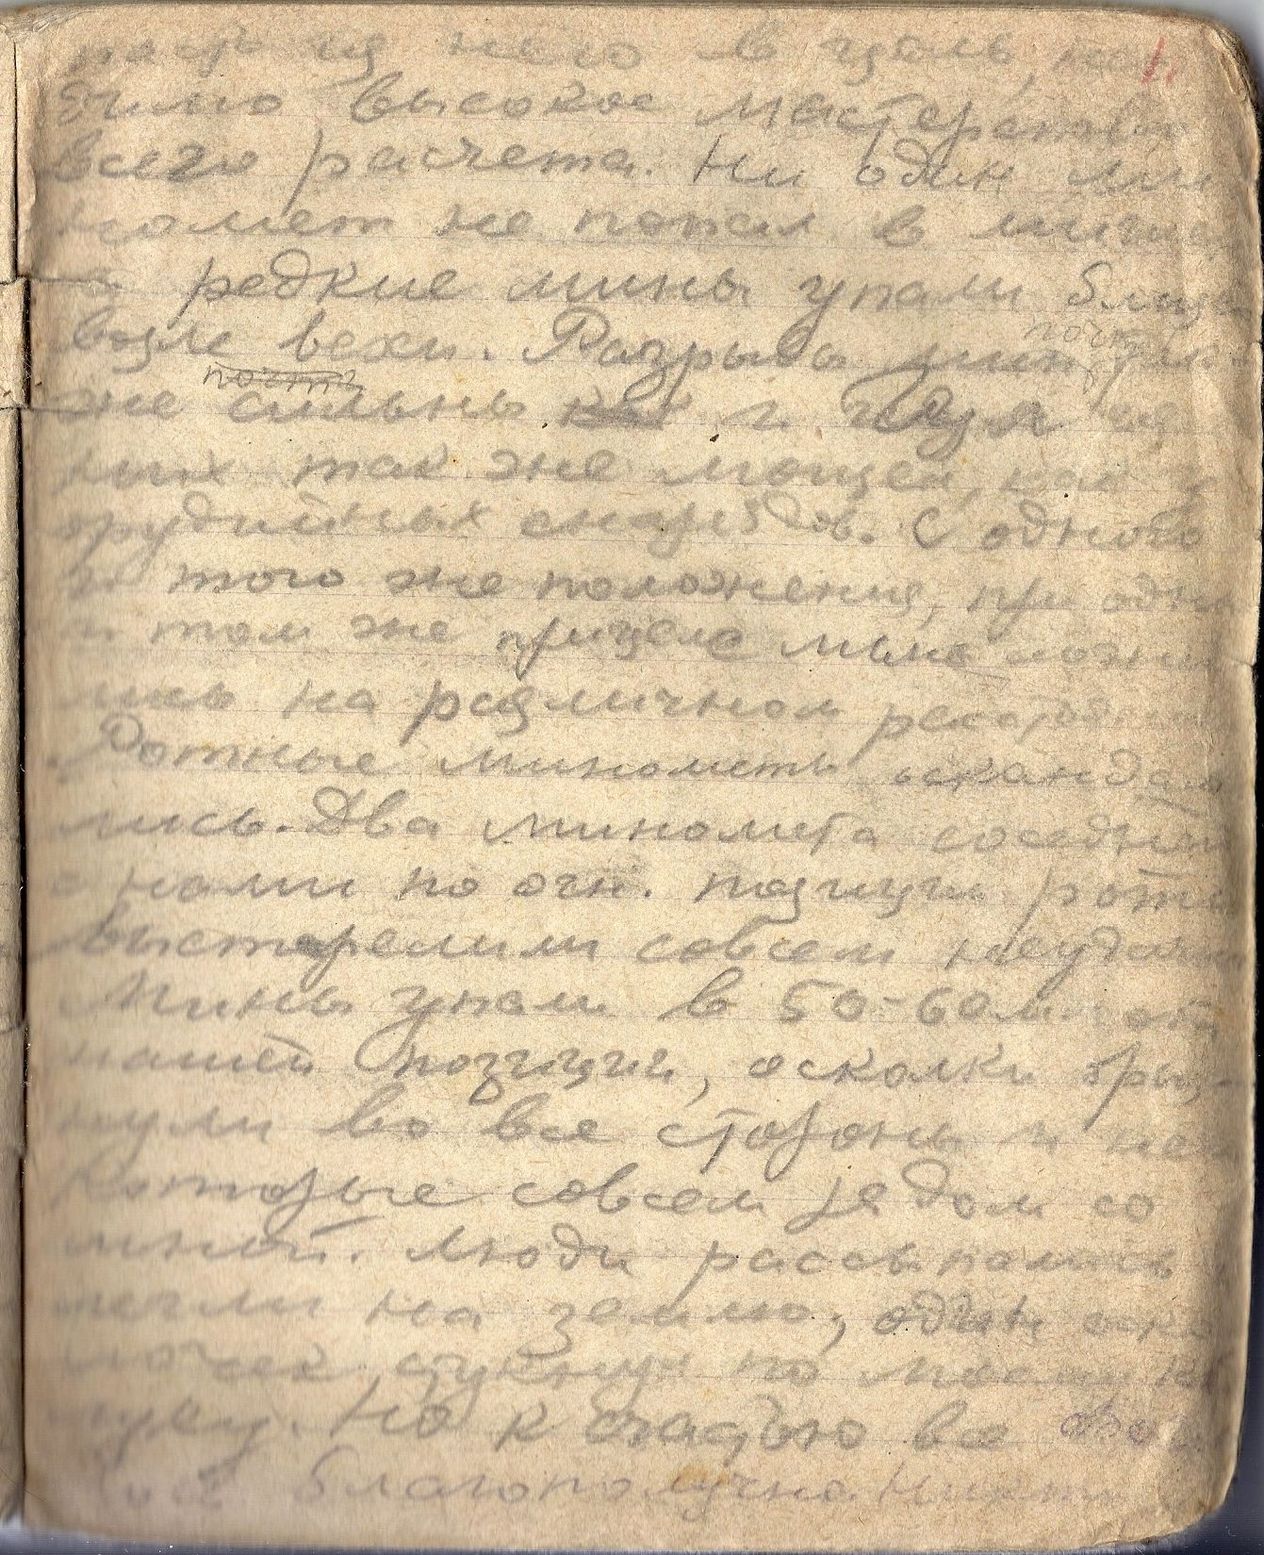 из него в цель,
было высокое мастерство
всего расчета. Ни один ми
номет не попал в
редкие мины упали близ
возле вехи. Разрывы мин почти
же сильны и гул
ных так же мощен, как
орудийных снарядов. С одного
и того же положения, при одн
и том же прицеле мины ложи
лись на различном
Ротные минометы оскандал
лись. Два миномета соседней
с нами по огн. позиции роты
выстрелили совсем неудач
Мины упали в 50-60 м от
нашей позиции, осколки бры-
нули во все стороны и не
которые совсем рядом со
мной. Люди рассыпались
легли на землю, один оско
лочек стукнул по моему
Но к счастью все
благополучно. Никто